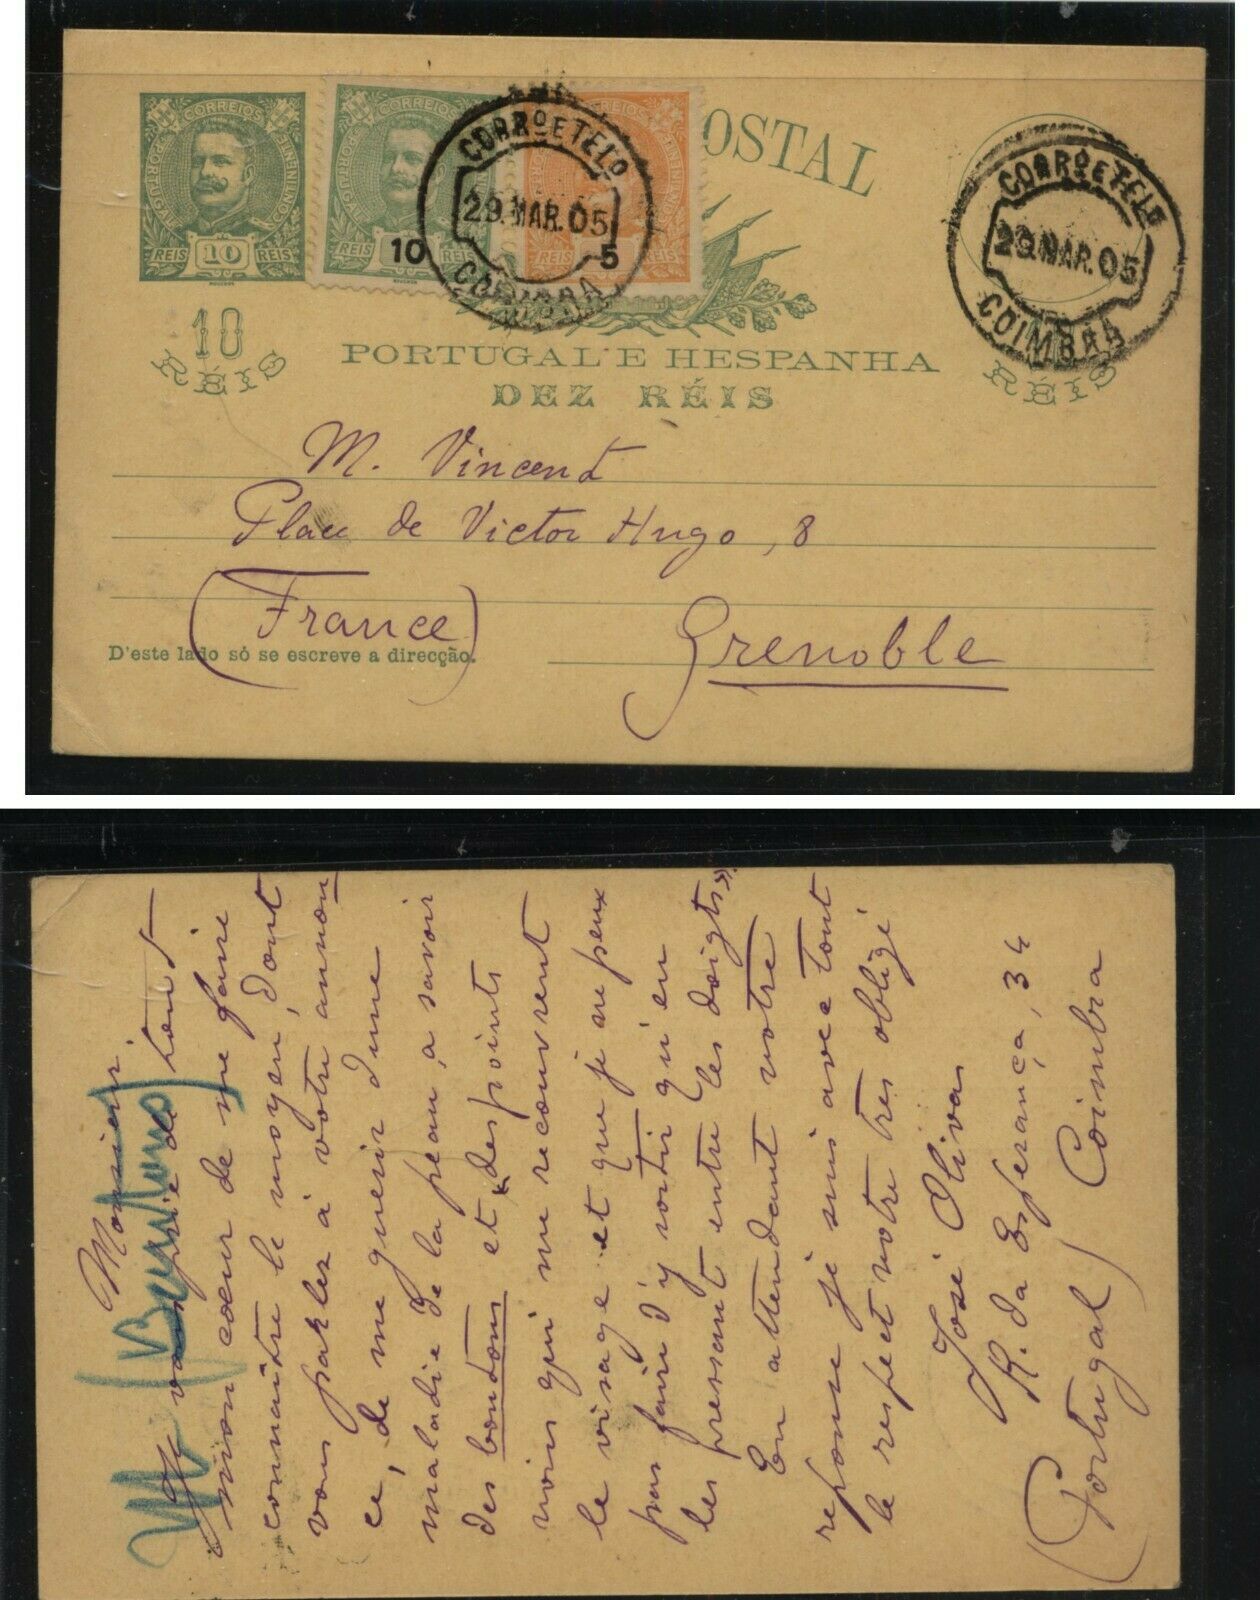 CORREIOS
PORTUGAL
CONTINENTE
REIS 10 REIS
CORREIOS
REIS
10
CORREIOS
CONTINENTE
5
REIS
OSTAL
CORR.º E TEL.º
29. MAR. 05
COIMBRA
CORR.º E TEL.º
29. MAR. 05
COIMBRA
10
RÉIS
RÉIS
PORTUGAL E HESPANHA
DEZ RÉIS
M. Vincent
Place de Victor Hugo, 8
(France)
Grenoble
D'este lado só se escreve a direcção.
Monsieur.
Je vous prie de tout
mon cœur de me faire
connaitre le moyen, dont
vous parlez à votre annon
ce, de me guerir d'une
maladie de la peau, a savoir
des boutons et "des points
noirs qui me recouvrent
le visage et que je ne peux
pas faire d'y sortir qu'en
les pressant entre les doigts".
En attendant votre
reponse je suis avec tout
le respet votre tres obligé
José Olivas
R. da Esperança, 34
(Portugal) Coimbra